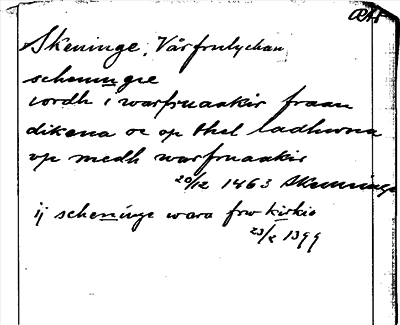 ÖN
Skeninge, Vårfrukyrkan
scheningie
iordh i warfruaakir fraan
dikena oc op thel ladhonna
op medh warfruaakir
20/12 1463 Skeninge
ij scheninge wara frw kirkio
23/2 1399